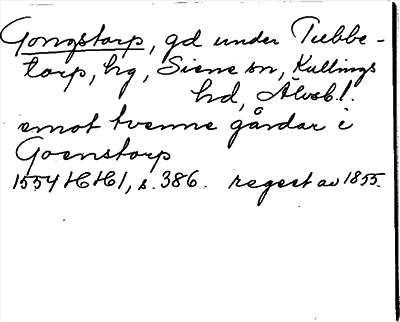 Gongstorp, gd under Tubbe-
torp, hg, Siene sn, Kullings
hd, Älvsb. l.
emot tvenne gårdar i
Goenstorp
1554 HH 1, s. 386. regest av 1855.